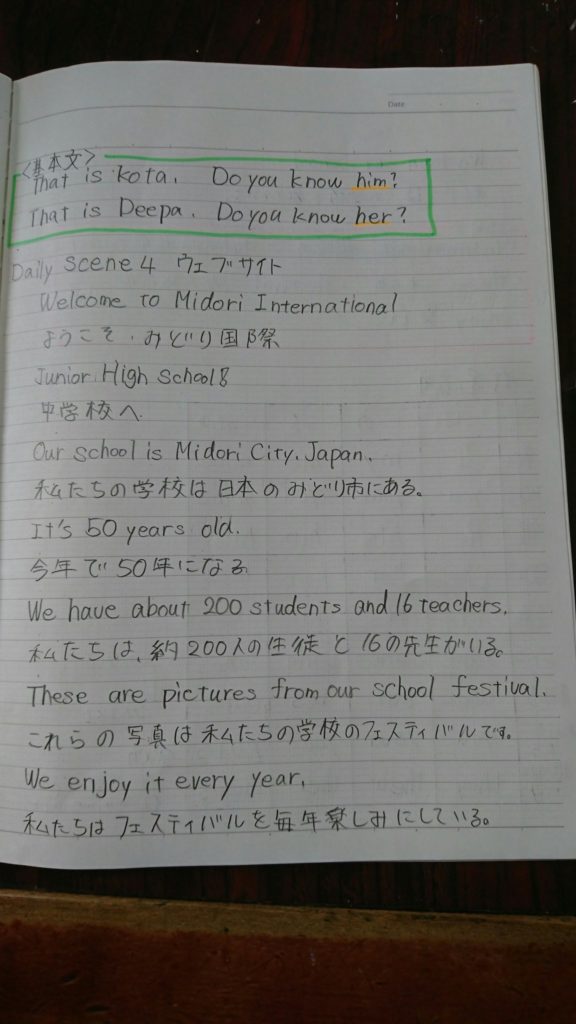 Date
<基本文>
That is kota. Do you know him?
That is Deepa. Do you know her?
Daily Scene 4 ウェブサイト
Welcome to Midori International
ようこそ.みどり国際
Junior High School8
中学校へ
Our school is Midori City, Japan.
私たちの学校は日本のみどり市にある。
It's 50 years old.
今年で50年になる
We have about 200 students and 16 teachers.
私たちは、約200人の生徒と16の先生がいる。
These are pictures from our school festival.
これらの写真は私たちの学校のフェスティバルです。
We enjoy it every year.
私たちはフェスティバルを毎年楽しみにしている。